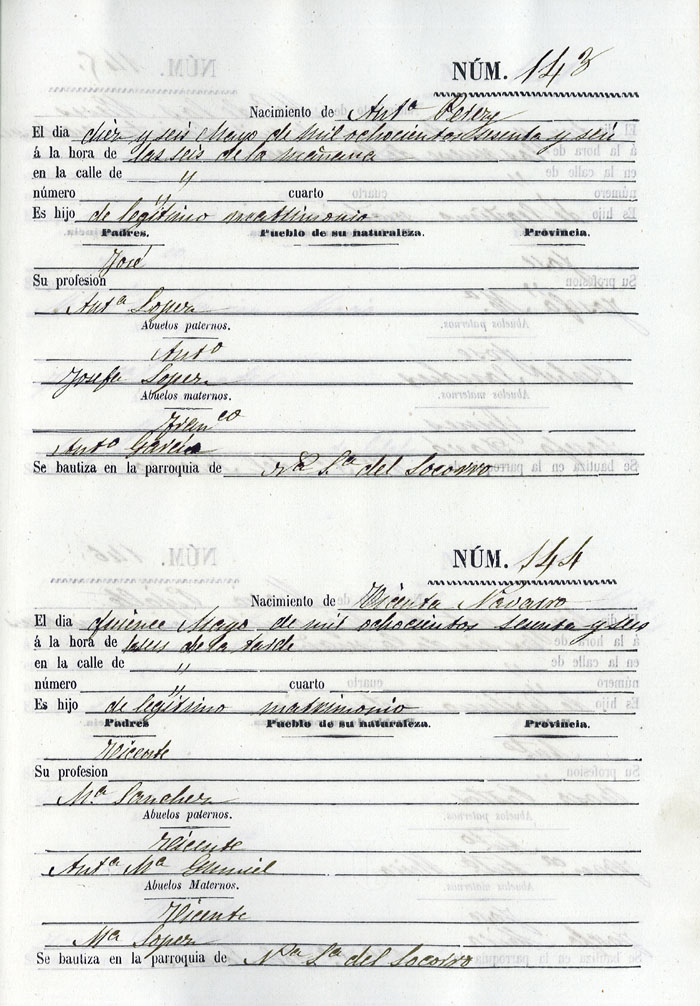 NÚM. 143
Nacimiento de Antª Perez
El dia diez y seis Mayo de mil ochocientos sesenta y seis
á la hora de las seis de la mañana
en la calle de "
número " cuarto
Es hijo de legítimo matrimonio
Padres. Pueblo de su naturaleza. Provincia.
José
Su profesion
Antª Lopez
Abuelos paternos.
Antº
Josefa Lopez
Abuelos maternos.
Franco
Antª García
Se bautiza en la parroquia de Nª Sª del Socorro
NÚM. 144
Nacimiento de Vicenta Navarro
El dia quince Mayo de mil ochocientos sesenta y seis
á la hora de las seis de la tarde
en la calle de "
número " cuarto
Es hijo de legítimo matrimonio
Padres Pueblo de su naturaleza. Provincia.
Vicente
Su profesion
Mª Sanchez
Abuelos paternos.
Vicente
Antª Mª
Abuelos Maternos.
Vicente
Mª Lopez
Se bautiza en la parroquia de Nª Sª del Socorro